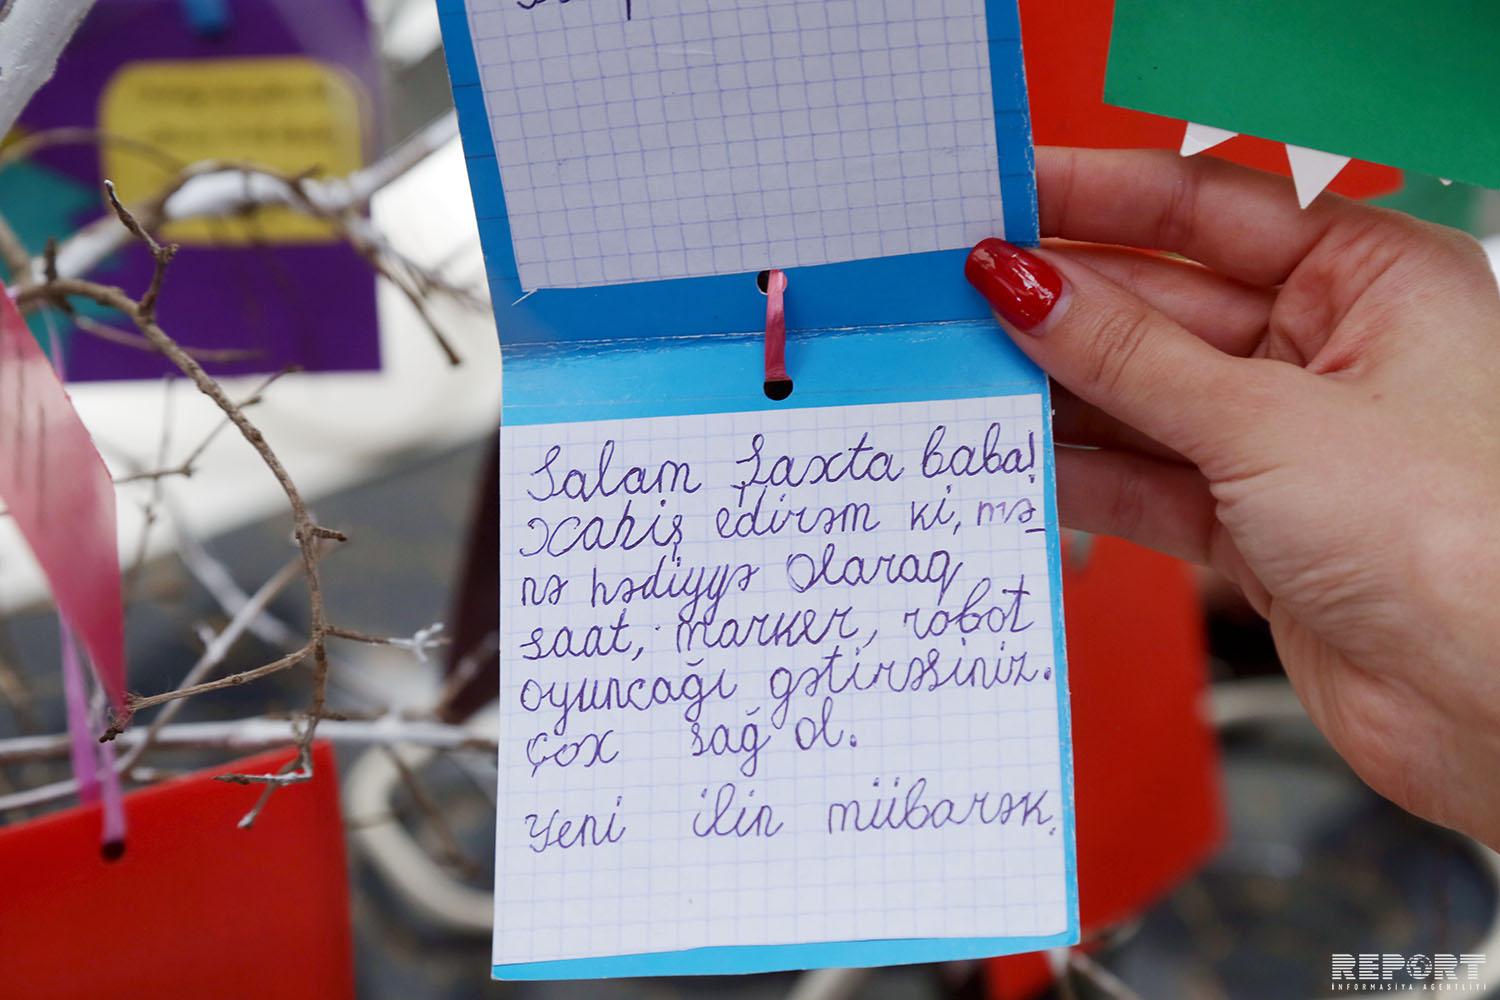 Salam Şaxta baba!
Xahiş edirəm ki, mə_
nə hədiyyə olaraq
saat, marker, robot
oyuncağı gətirəsiniz.
Çox sağ ol.
Yeni ilin mübarək.
REPORT
İNFORMASİYA AGENTLİYİ